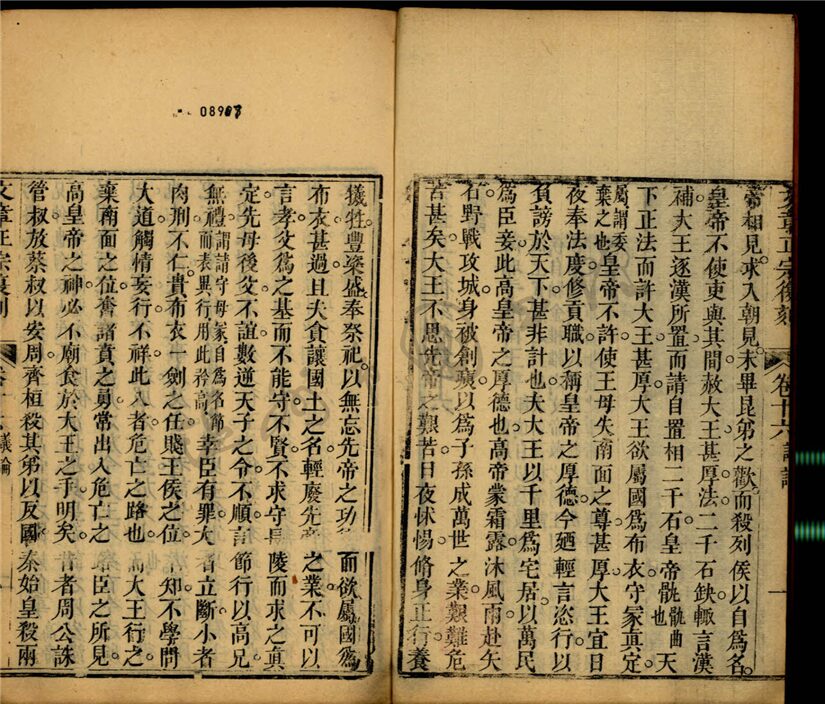 文章正宗復刻 卷十六 一
常相見求入朝見未畢昆弟之歡而殺列侯以自為名
皇帝不使吏與其間赦大王甚厚法二千石缺輙言漢
補大王逐漢所置而請自置相二千石皇帝骫骫曲也天
下正法而許大王甚厚大王欲屬國為布衣守冢真定
屬謂委棄之也皇帝不許使王毋失南面之尊甚厚大王宜日
夜奉法度修貢職以稱皇帝之厚德今廼輕言恣行以
負謗於天下甚非計也夫大王以千里為宅居以萬民
為臣妾此高皇帝之厚德也高帝蒙霜露沐風雨赴矢
石野戰攻城身被創痍以為子孫成萬世之業艱難危
苦甚矣大王不思先帝之艱苦日夜怵惕脩身正行養
犧牲豐粢盛奉祭祀以無忘先帝之功而欲屬國為
布衣甚過且夫貪讓國土之名輕廢先帝之業不可以
言孝父為之基而不能守不賢不求守長陵而求之真
定先母後父不誼數逆天子之令不順言節行以高兄
無禮謂請守母冢自為名節而表異行用此矜高幸臣有罪大者立斷小者
肉刑不仁貴布衣一劍之任賤王侯之位不知不學問
大道觸情妄行不祥此八者危亡之路也而大王行之
棄南面之位奮諸賁之勇常出入危亡之路臣之所見
高皇帝之神必不廟食於大王之手明矣昔者周公誅
管叔放蔡叔以安周齊桓殺其弟以反國秦始皇殺兩
文章正宗復刻 卷十六 議論